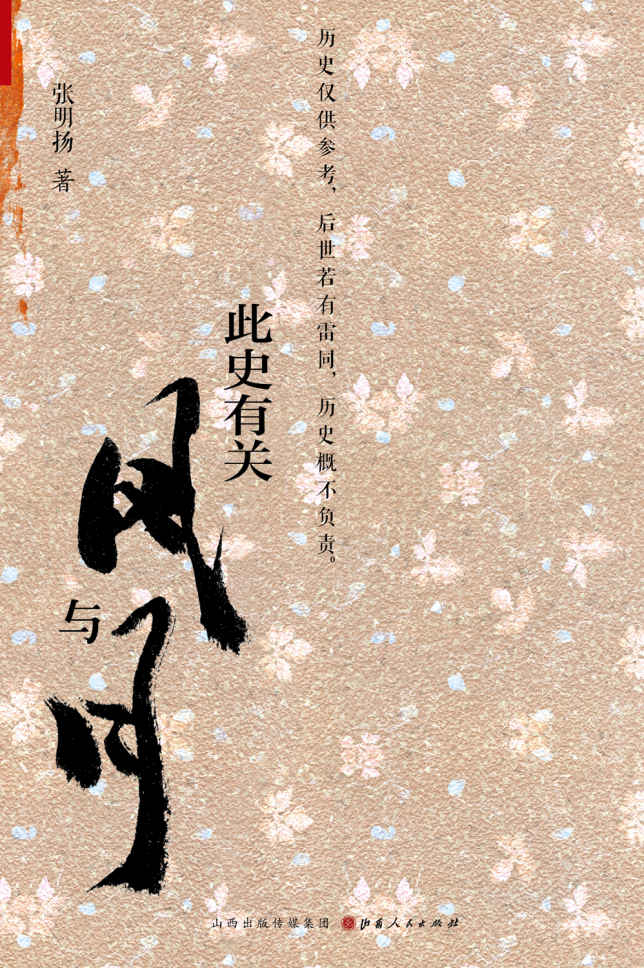 历史仅供参考，后世若有雷同，历史概不负责。
此史有关
风
与
月
张明扬 著
山西出版传媒集团 山西人民出版社